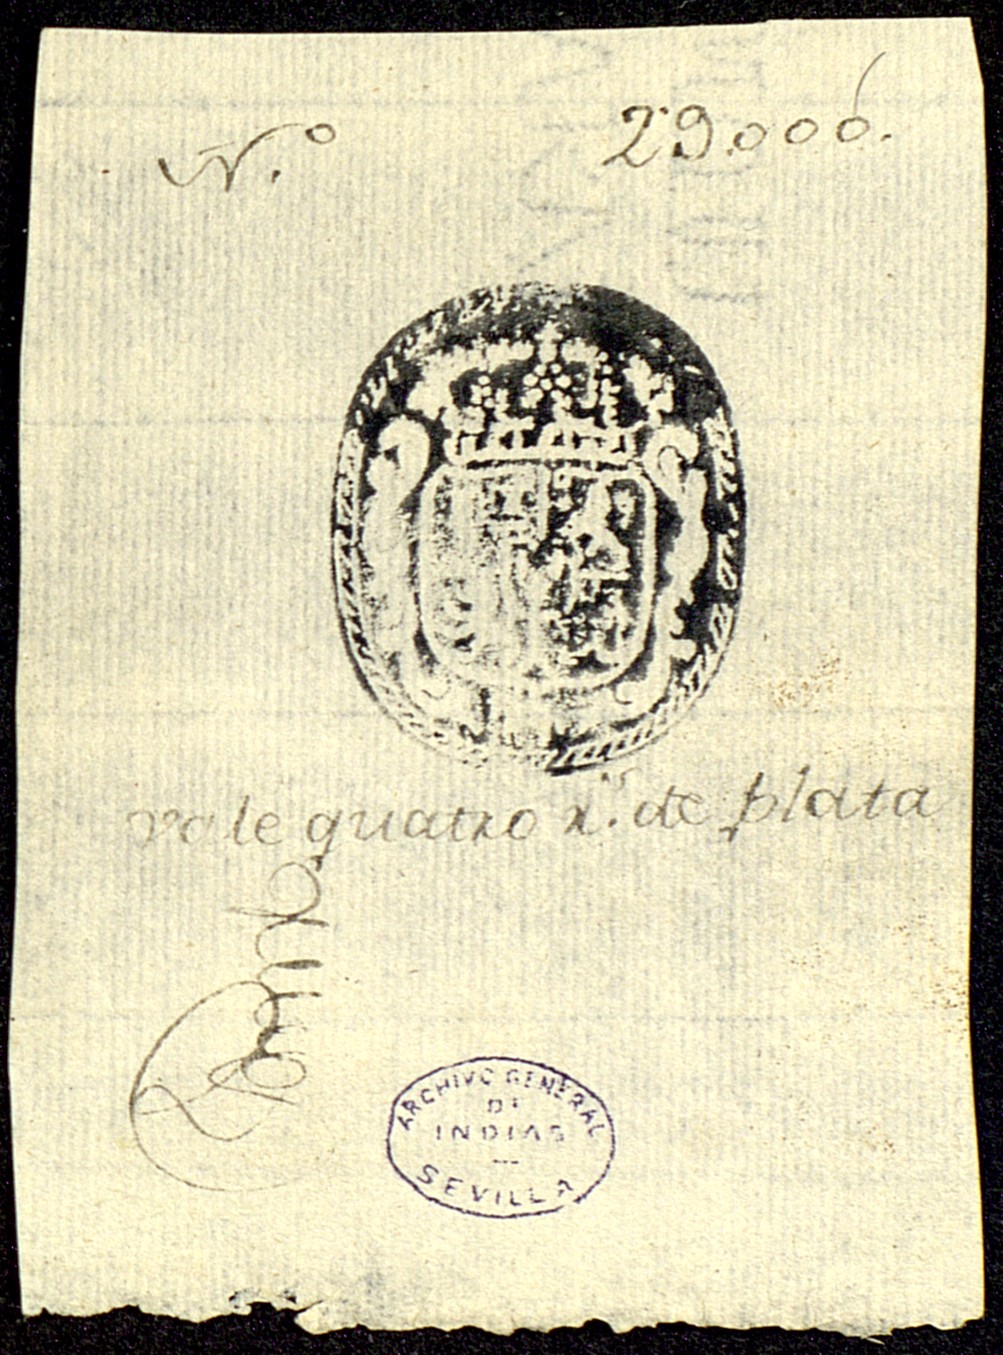 N.º 29.000.
vale quatro r.s de plata
ARCHIVO GENERAL
DE
INDIAS
SEVILLA